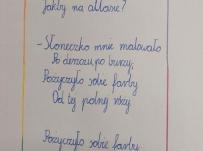 Jakby na atłasie?
- Słoneczko mnie malowało
Po deszczu, po burzy;
Pożyczyło sobie farby
Od tej polnej róży.
Pożyczyło sobie farby